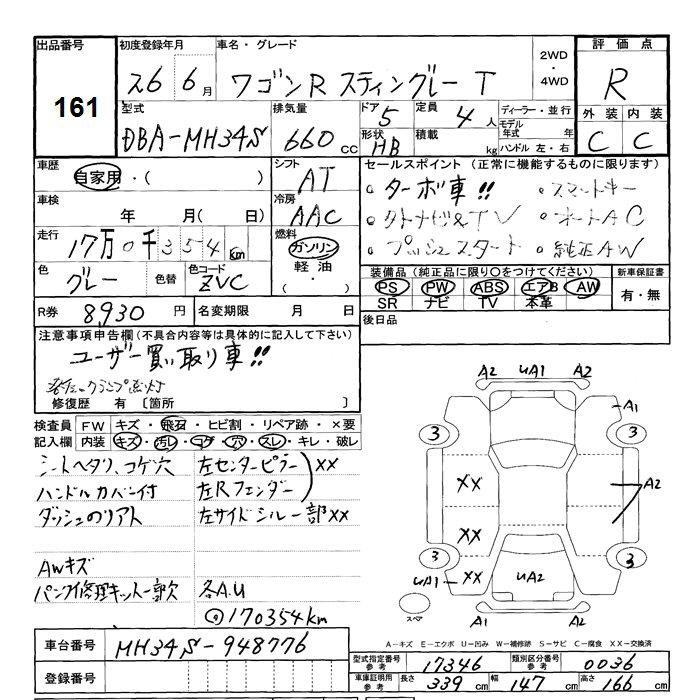 出品番号 初度登録年月 車名・グレード 2WD・4WD 評価点
161 26 6月 ワゴンR スティングレー T R
型式 排気量 ドア 5 定員 4人 ディーラー・並行 外装 内装
DBA-MH34S 660cc 形状 HB 積載 kg モデル年式 年 ハンドル 左・右 C C
車歴 自家用・( ) シフト AT セールスポイント(正常に機能するものに限ります)
車検 年 月( 日) 冷房 AAC 。ターボ車!! 。スマートキー
走行 17万0千354km 燃料 ガソリン 軽油 ・( ) 。ナビ&TV 。オートAC
色 グレー 色替 色コード ZVC 。プッシュスタート 。純正AW
装備品(純正品に限り○をつけてください) 新車保証書
PS PW ABS エアB AW 有・無
SR ナビ TV 本革
R券 8930円 名変期限 月 日 後日品
注意事項申告欄(不具合内容等は具体的に記入して下さい)
ユーザー買い取り車!!
修復歴 有〔箇所 〕
検査員記入欄 FW キズ・飛石・ヒビ割・リペア跡・×要
内装 キズ・汚レ・コゲ・穴・スレ・キレ・破レ
シートヘタリ、コゲ穴 左センターピラー XX
ハンドルカバー付 左Rフェンダー
ダッシュのリアト 左サイドシル一部XX
AWキズ
パンク修理キット一部欠 各A.U
◎170354km
A2 UA1 A2
A1
3 3
XX A2
XX
3 3
UA1 XX UA2
スペア A2 A1 A2
A-キズ E-エクボ U-凹み W-補修跡 S-サビ C-腐食 XX-交換済
車台番号 MH34S-948776
登録番号
型式指定番号 参考 17346 類別区分番号 参考 0036
車庫証明用 参考 長さ 339cm 幅 147cm 高さ 166cm